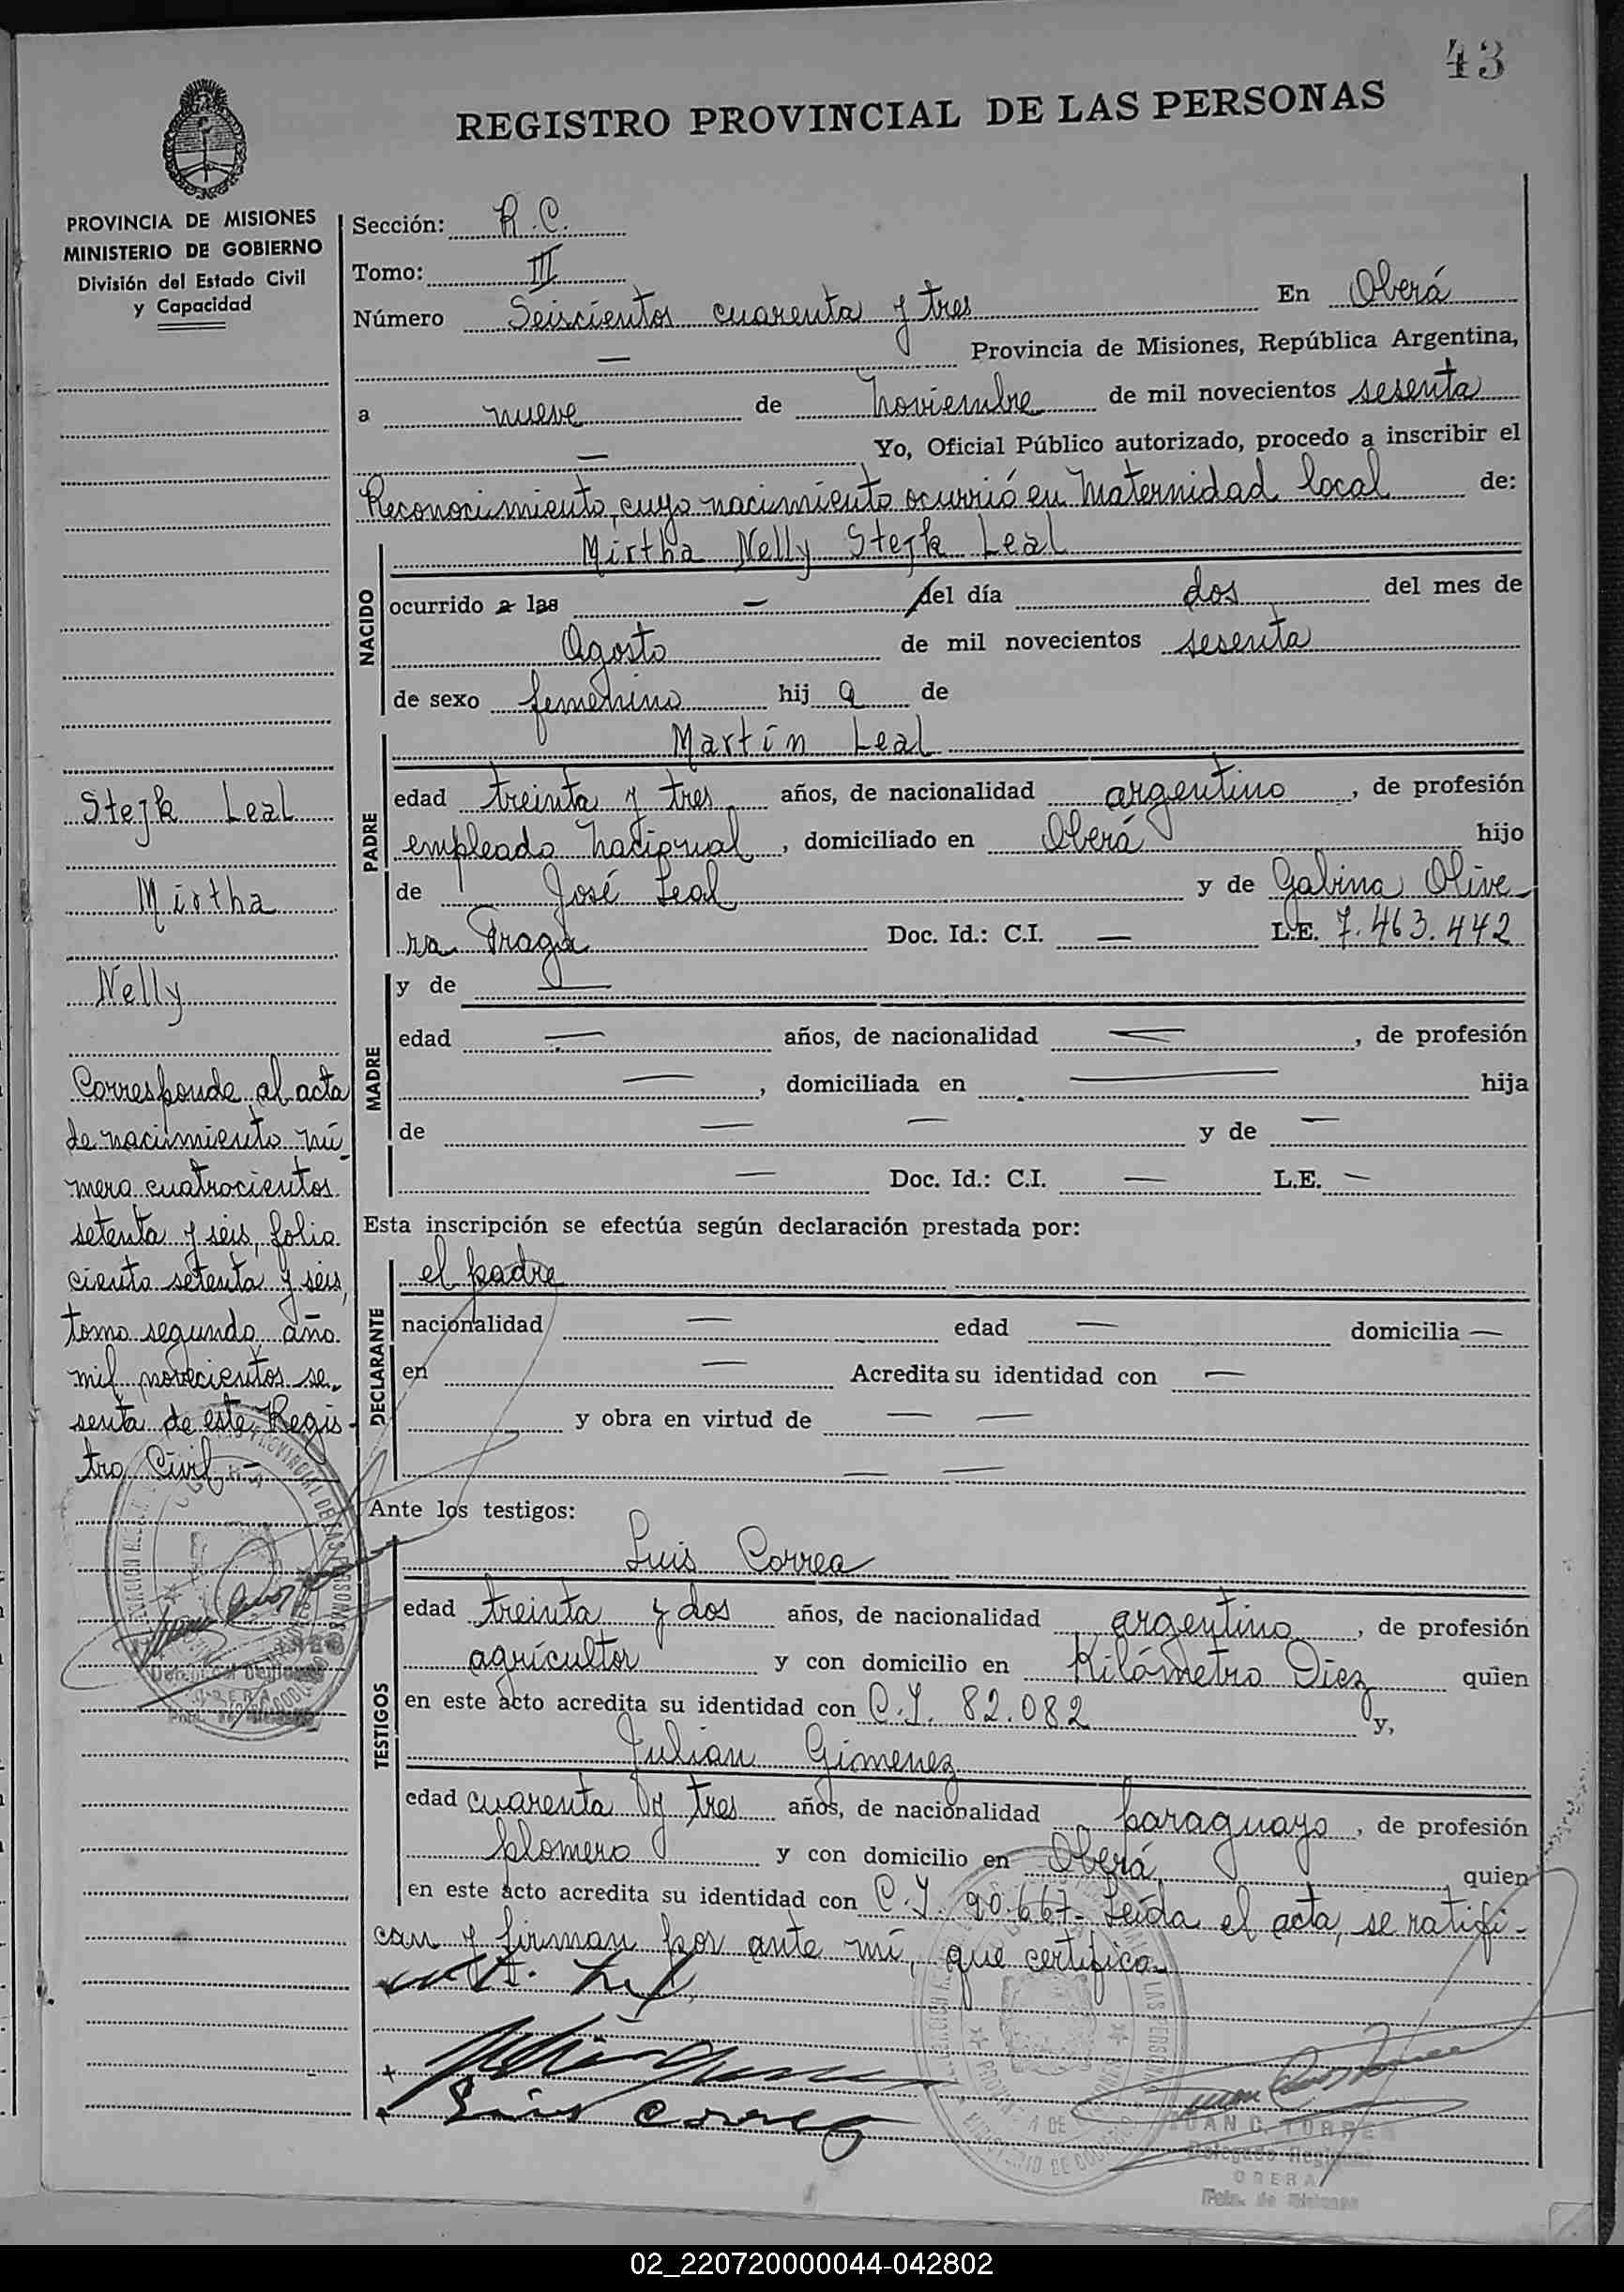 43
REGISTRO PROVINCIAL DE LAS PERSONAS
PROVINCIA DE MISIONES
MINISTERIO DE GOBIERNO
División del Estado Civil
y Capacidad
Sección: R.C.
Tomo: III
Número Seiscientos cuarenta y tres En Oberá
— Provincia de Misiones, República Argentina,
a nueve de Noviembre de mil novecientos sesenta
— Yo, Oficial Público autorizado, procedo a inscribir el
Reconocimiento, cuyo nacimiento ocurrió en Maternidad local de:
NACIDO
Mirtha Nelly Stejk Leal
ocurrido a las — del día dos del mes de
Agosto de mil novecientos sesenta
de sexo femenino hij a de
PADRE
Martín Leal
edad treinta y tres años, de nacionalidad argentino, de profesión
empleado nacional, domiciliado en Oberá hijo
de José Leal y de Gabina Olive
ra Fraga Doc. Id.: C.I. — L.E. 7.463.442
MADRE
y de —
edad — años, de nacionalidad —, de profesión
—, domiciliada en — hija
de — — y de —
— Doc. Id.: C.I. — L.E. —
Esta inscripción se efectúa según declaración prestada por:
DECLARANTE
el padre
nacionalidad — edad — domicilia —
en — Acredita su identidad con —
y obra en virtud de — —
— —
Ante los testigos:
TESTIGOS
Luis Correa
edad treinta y dos años, de nacionalidad argentino, de profesión
agricultor y con domicilio en Kilómetro Diez quien
en este acto acredita su identidad con C.I. 82.082 y,
Julian Gimenez
edad cuarenta y tres años, de nacionalidad paraguayo, de profesión
plomero y con domicilio en Oberá, quien
en este acto acredita su identidad con C.I. 90.667- Leída el acta, se ratifi-
can y firman por ante mí, que certifico.
Luis Correa
JUAN C. TORRES
Delegado Regional
OBERA
Pcia. de Misiones
Stejk Leal
Mirtha
Nelly
Corresponde al acta
de nacimiento nú
mero cuatrocientos
setenta y seis, folio
ciento setenta y seis,
tomo segundo, año
mil novecientos se-
senta de este Regis-
tro Civil.-
02_220720000044-042802